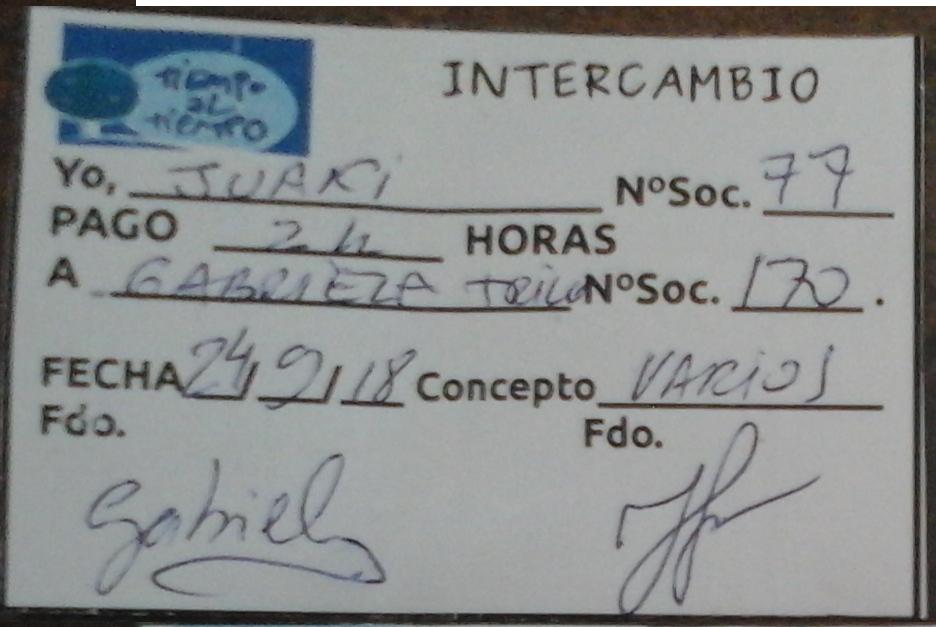 tiempo
al
tiempo
INTERCAMBIO
Yo, JUAKi NºSoc. 77
PAGO 2 h HORAS
A GABRIELA NºSoc. 170.
FECHA 24/9/18 Concepto VARIOS
Fdo. Fdo.
Gabriela